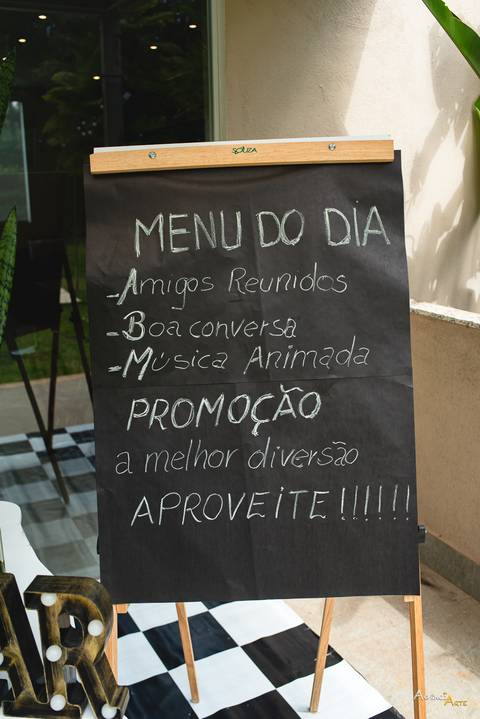 SOUZA
MENU DO DIA
-Amigos Reunidos
-Boa conversa
-Música Animada
PROMOÇÃO
a melhor diversão
APROVEITE !!!!!!
AR